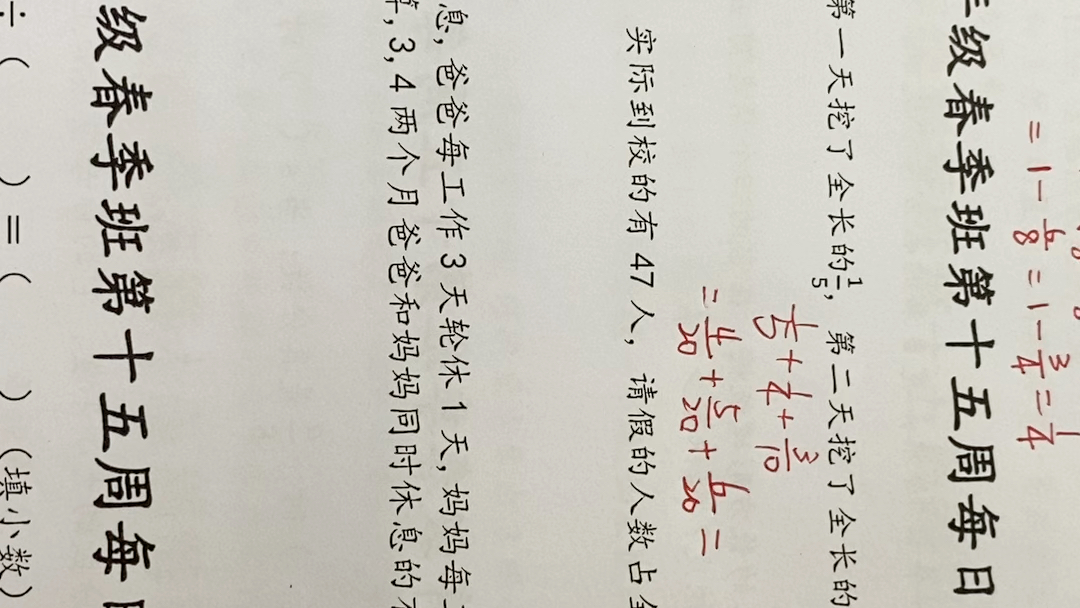 = 1 - 6/8 = 1 - 3/4 = 1/4
级春季班第十五周每日
第一天挖了全长的1/5，第二天挖了全长的
1/5 + 1/4 + 3/10
= 4/20 + 5/20 + 6/20 =
实际到校的有 47 人，请假的人数占
息，爸爸每工作 3 天轮休 1 天，妈妈每
，3，4 两个月爸爸和妈妈同时休息的
级春季班第十五周每
÷（ ）=（ ）（填小数）